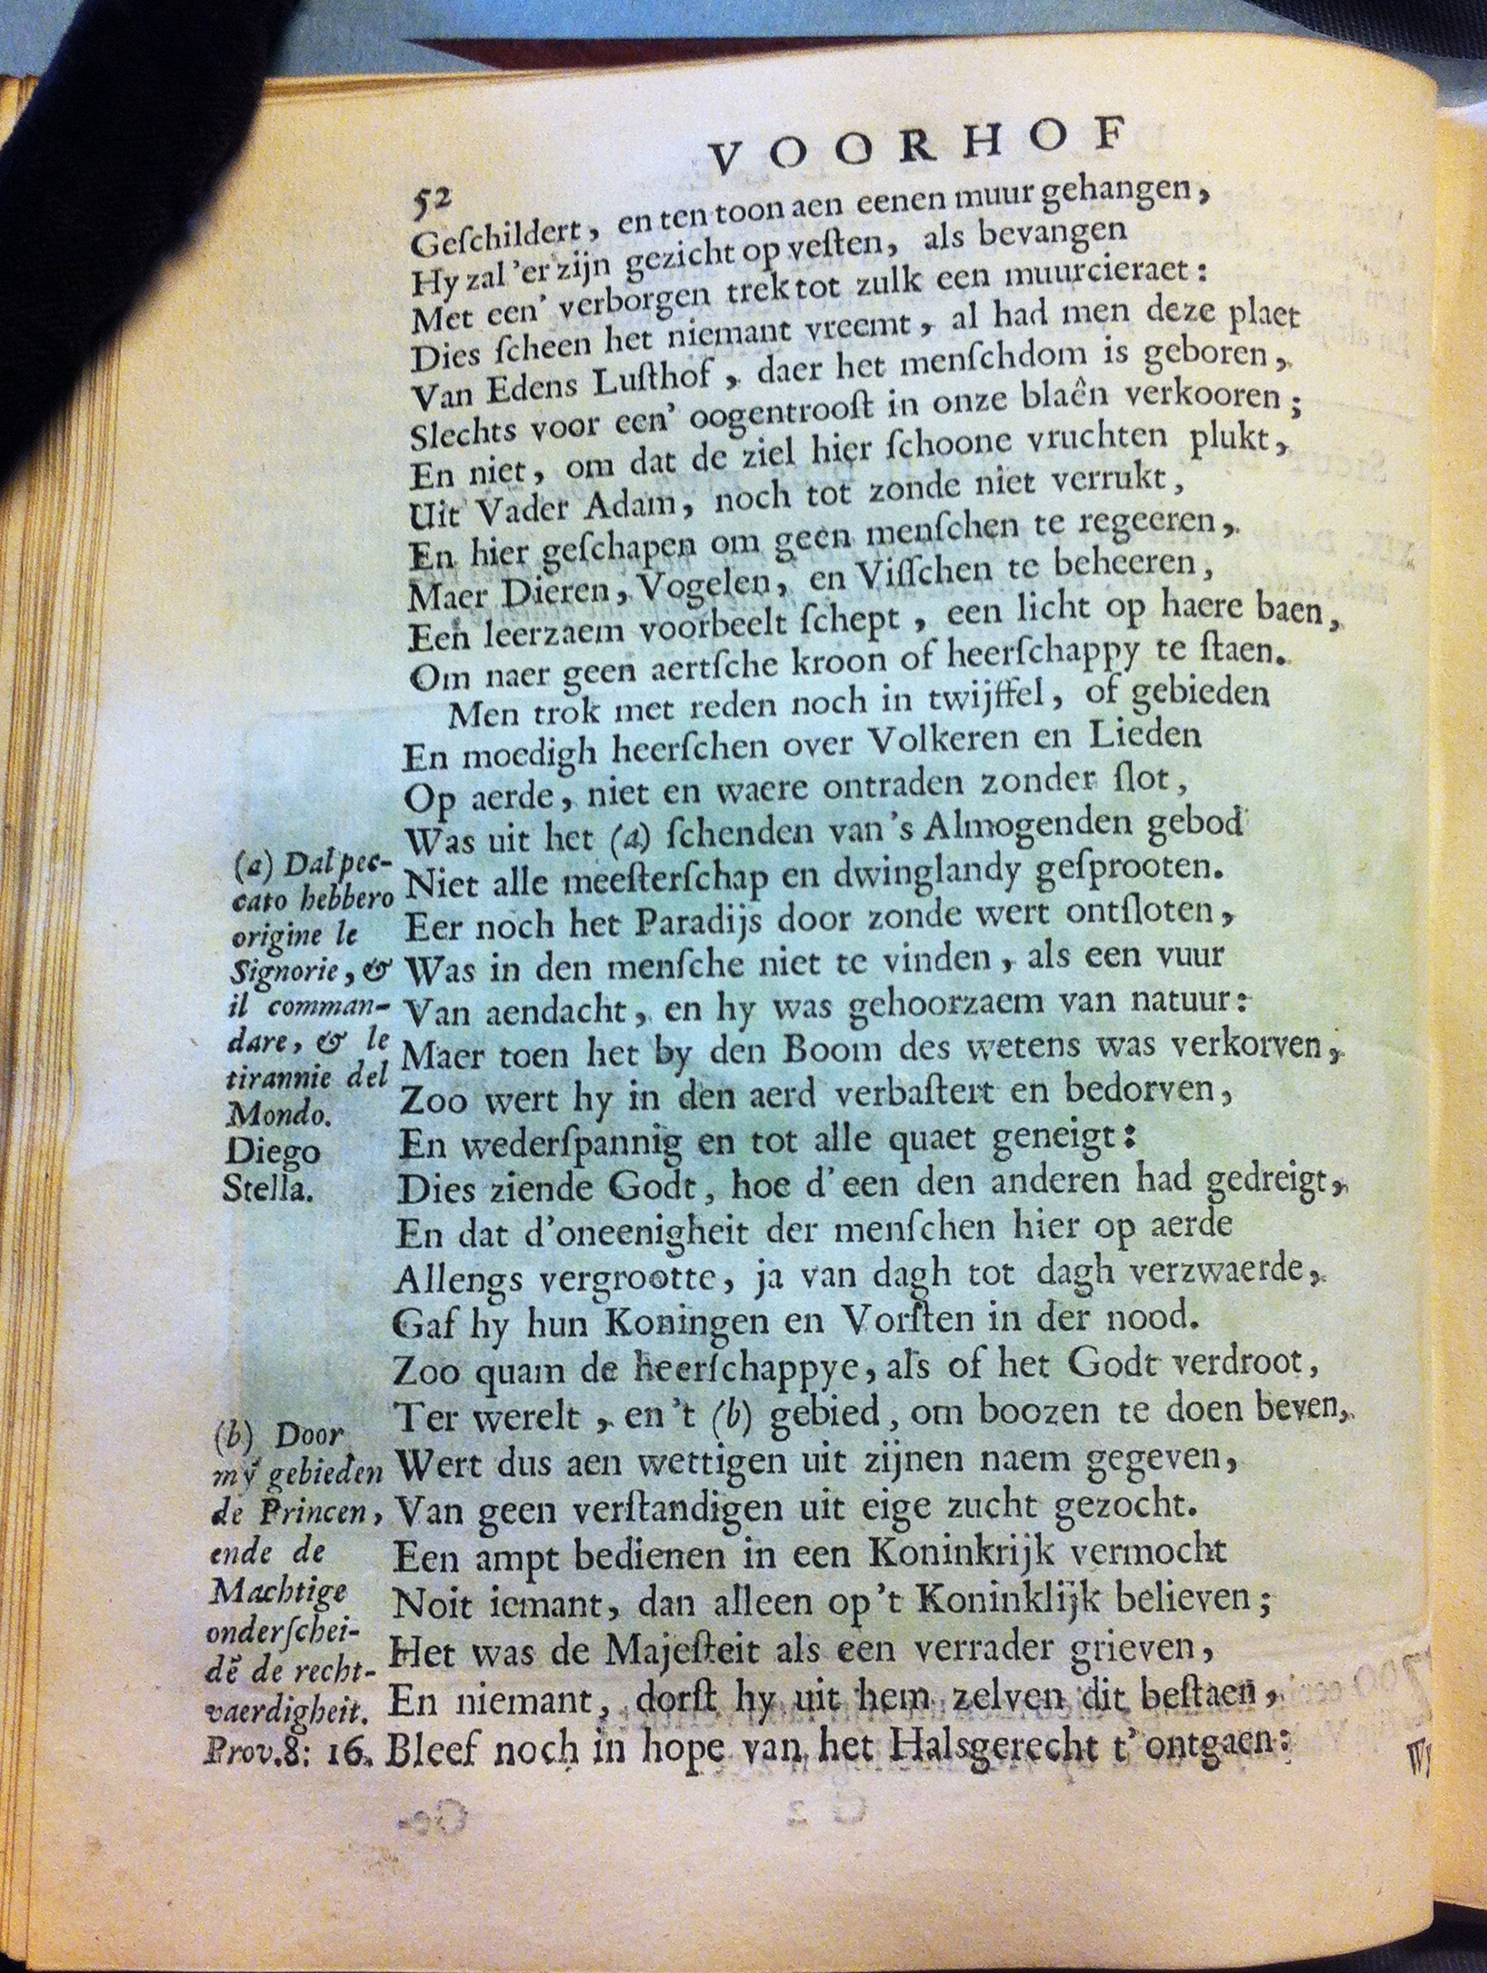 VOORHOF
52
Geſchildert, en ten toon aen eenen muur gehangen,
Hy zal 'er zijn gezicht op veſten, als bevangen
Met een' verborgen trek tot zulk een muurcieraet:
Dies ſcheen het niemant vreemt, al had men deze plaet
Van Edens Luſthof, daer het menſchdom is geboren,
Slechts voor een' oogentrooſt in onze blaên verkooren;
En niet, om dat de ziel hier ſchoone vruchten plukt,
Uit Vader Adam, noch tot zonde niet verrukt,
En hier geſchapen om geen menſchen te regeeren,
Maer Dieren, Vogelen, en Viſſchen te beheeren,
Een leerzaem voorbeelt ſchept, een licht op haere baen,
Om naer geen aertſche kroon of heerſchappy te ſtaen.
Men trok met reden noch in twijffel, of gebieden
En moedigh heerſchen over Volkeren en Lieden
Op aerde, niet en waere ontraden zonder ſlot,
Was uit het (a) ſchenden van 's Almogenden gebod
Niet alle meeſterſchap en dwinglandy geſprooten.
Eer noch het Paradijs door zonde wert ontſloten,
Was in den menſche niet te vinden, als een vuur
Van aendacht, en hy was gehoorzaem van natuur:
Maer toen het by den Boom des wetens was verkorven,
Zoo wert hy in den aerd verbaſtert en bedorven,
En wederſpannig en tot alle quaet geneigt:
Dies ziende Godt, hoe d'een den anderen had gedreigt,
En dat d'oneenigheit der menſchen hier op aerde
Allengs vergrootte, ja van dagh tot dagh verzwaerde,
Gaf hy hun Koningen en Vorſten in der nood.
Zoo quam de heerſchappye, als of het Godt verdroot,
Ter werelt, en 't (b) gebied, om boozen te doen beven,
Wert dus aen wettigen uit zijnen naem gegeven,
Van geen verſtandigen uit eige zucht gezocht.
Een ampt bedienen in een Koninkrijk vermocht
Noit iemant, dan alleen op 't Koninklijk believen;
Het was de Majeſteit als een verrader grieven,
En niemant, dorſt hy uit hem zelven dit beſtaen,
Bleef noch in hope van het Halsgerecht t'ontgaen:
(a) Dal pec-
cato hebbero
origine le
Signorie, &
il comman-
dare, & le
tirannie del
Mondo.
Diego
Stella.
(b) Door
mÿ gebieden
de Princen,
ende de
Machtige
onderſchei-
dẽ de recht-
vaerdigheit.
Prov. 8: 16.